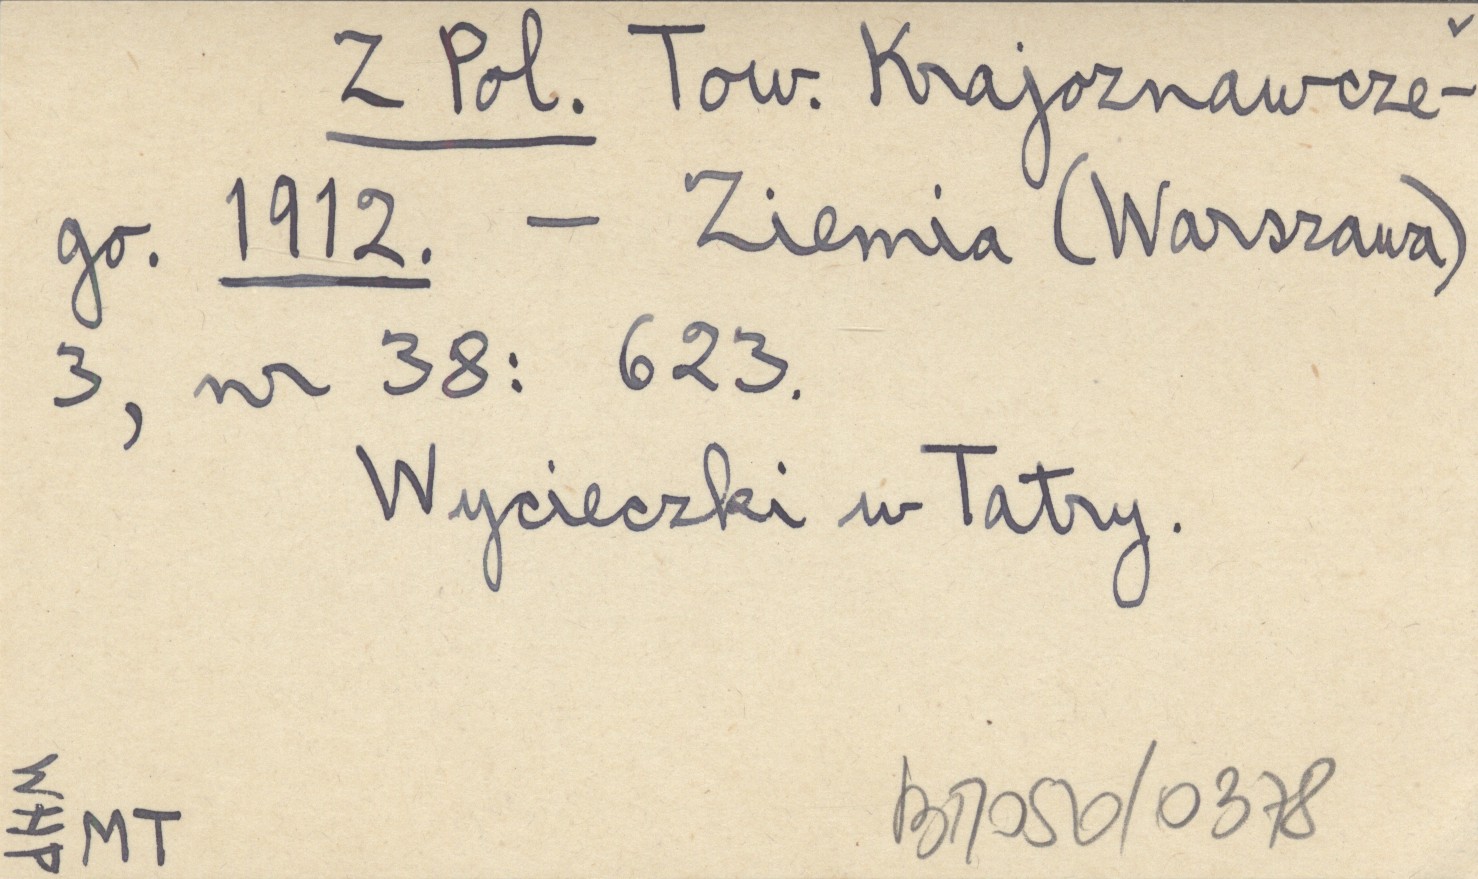 Z Pol. Tow. Krajoznawcze-
go. 1912. — Ziemia (Warszawa)
3, nr 38: 623.
Wycieczki w Tatry.
WHP
MT